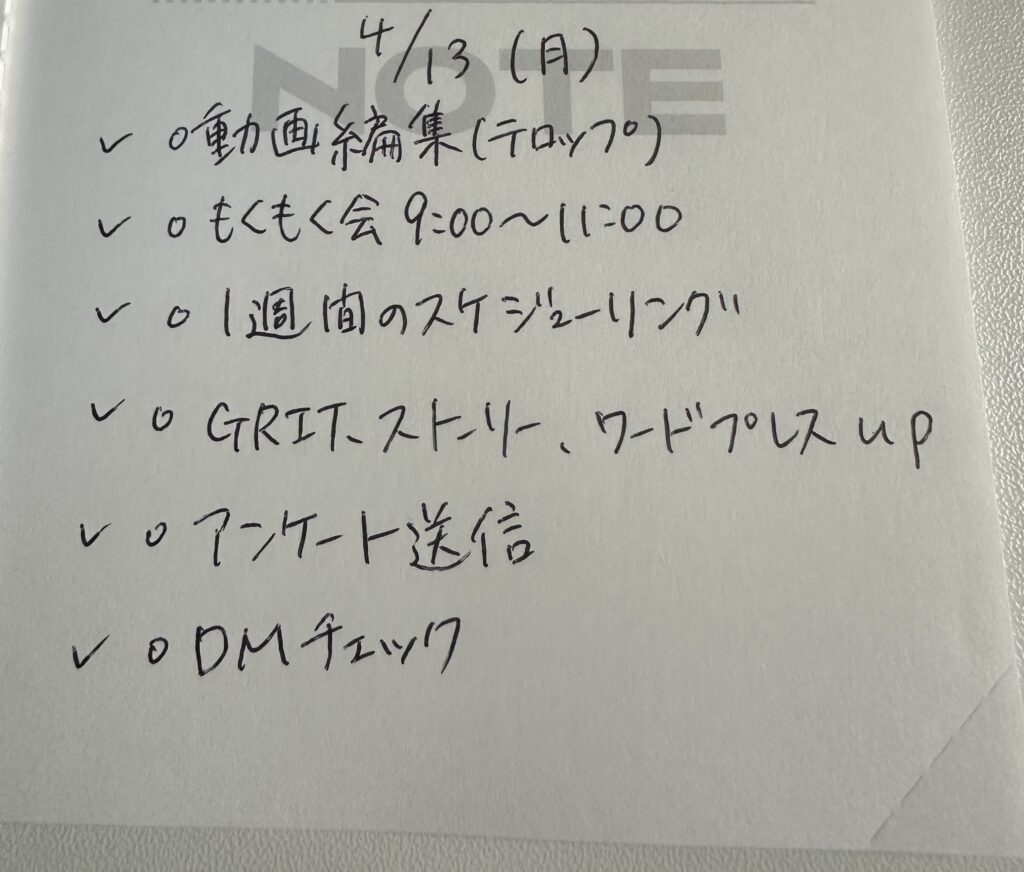 NOTE
4/13 (月)
✓ o 動画編集(テロップ)
✓ o もくもく会 9:00〜11:00
✓ o 1週間のスケジューリング
✓ o GRIT、ストーリー、ワードプレス up
✓ o アンケート送信
✓ o DMチェック